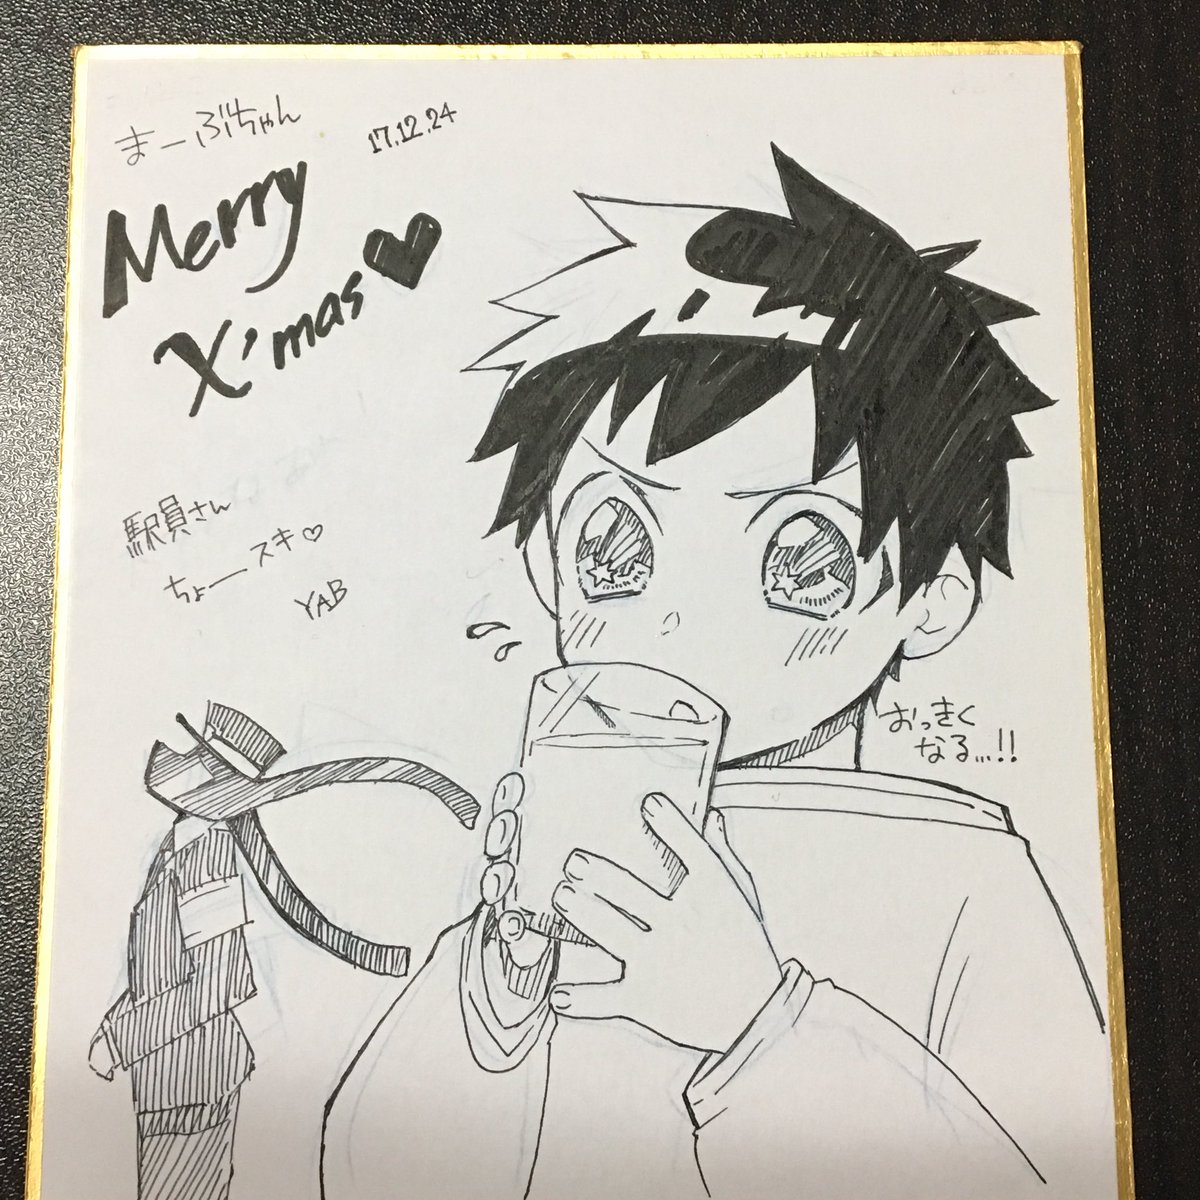 まーぶちゃん
17.12.24
Merry
X'mas♥
駅員さん
ちょースキ♡
YAB
おっきく
なる...!!